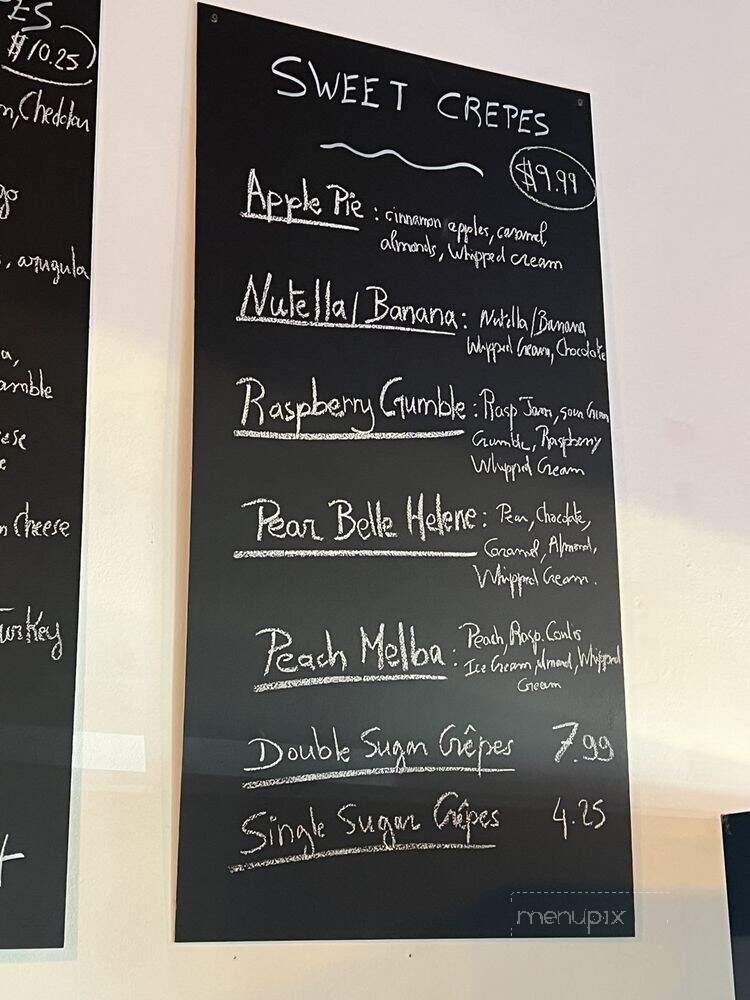 ES
$10.25
Cheddar
go
, arugula
a,
amble
ese
e
n Cheese
Turkey
SWEET CREPES
$9.99
Apple Pie : cinnamon apples, caramel,
almonds, Whipped cream
Nutella/Banana : Nutella/Banana
Whipped Cream, Chocolate
Raspberry Crumble : Rasp Jam, sour Cream
Crumble, Raspberry
Whipped Cream
Pear Belle Helene : Pear, Chocolate,
Caramel, Almond,
Whipped Cream.
Peach Melba : Peach, Rasp. Coulis
Ice Cream, almond, Whipped
Cream
Double Sugar Crêpes 7.99
Single Sugar Crêpes 4.25
menupix